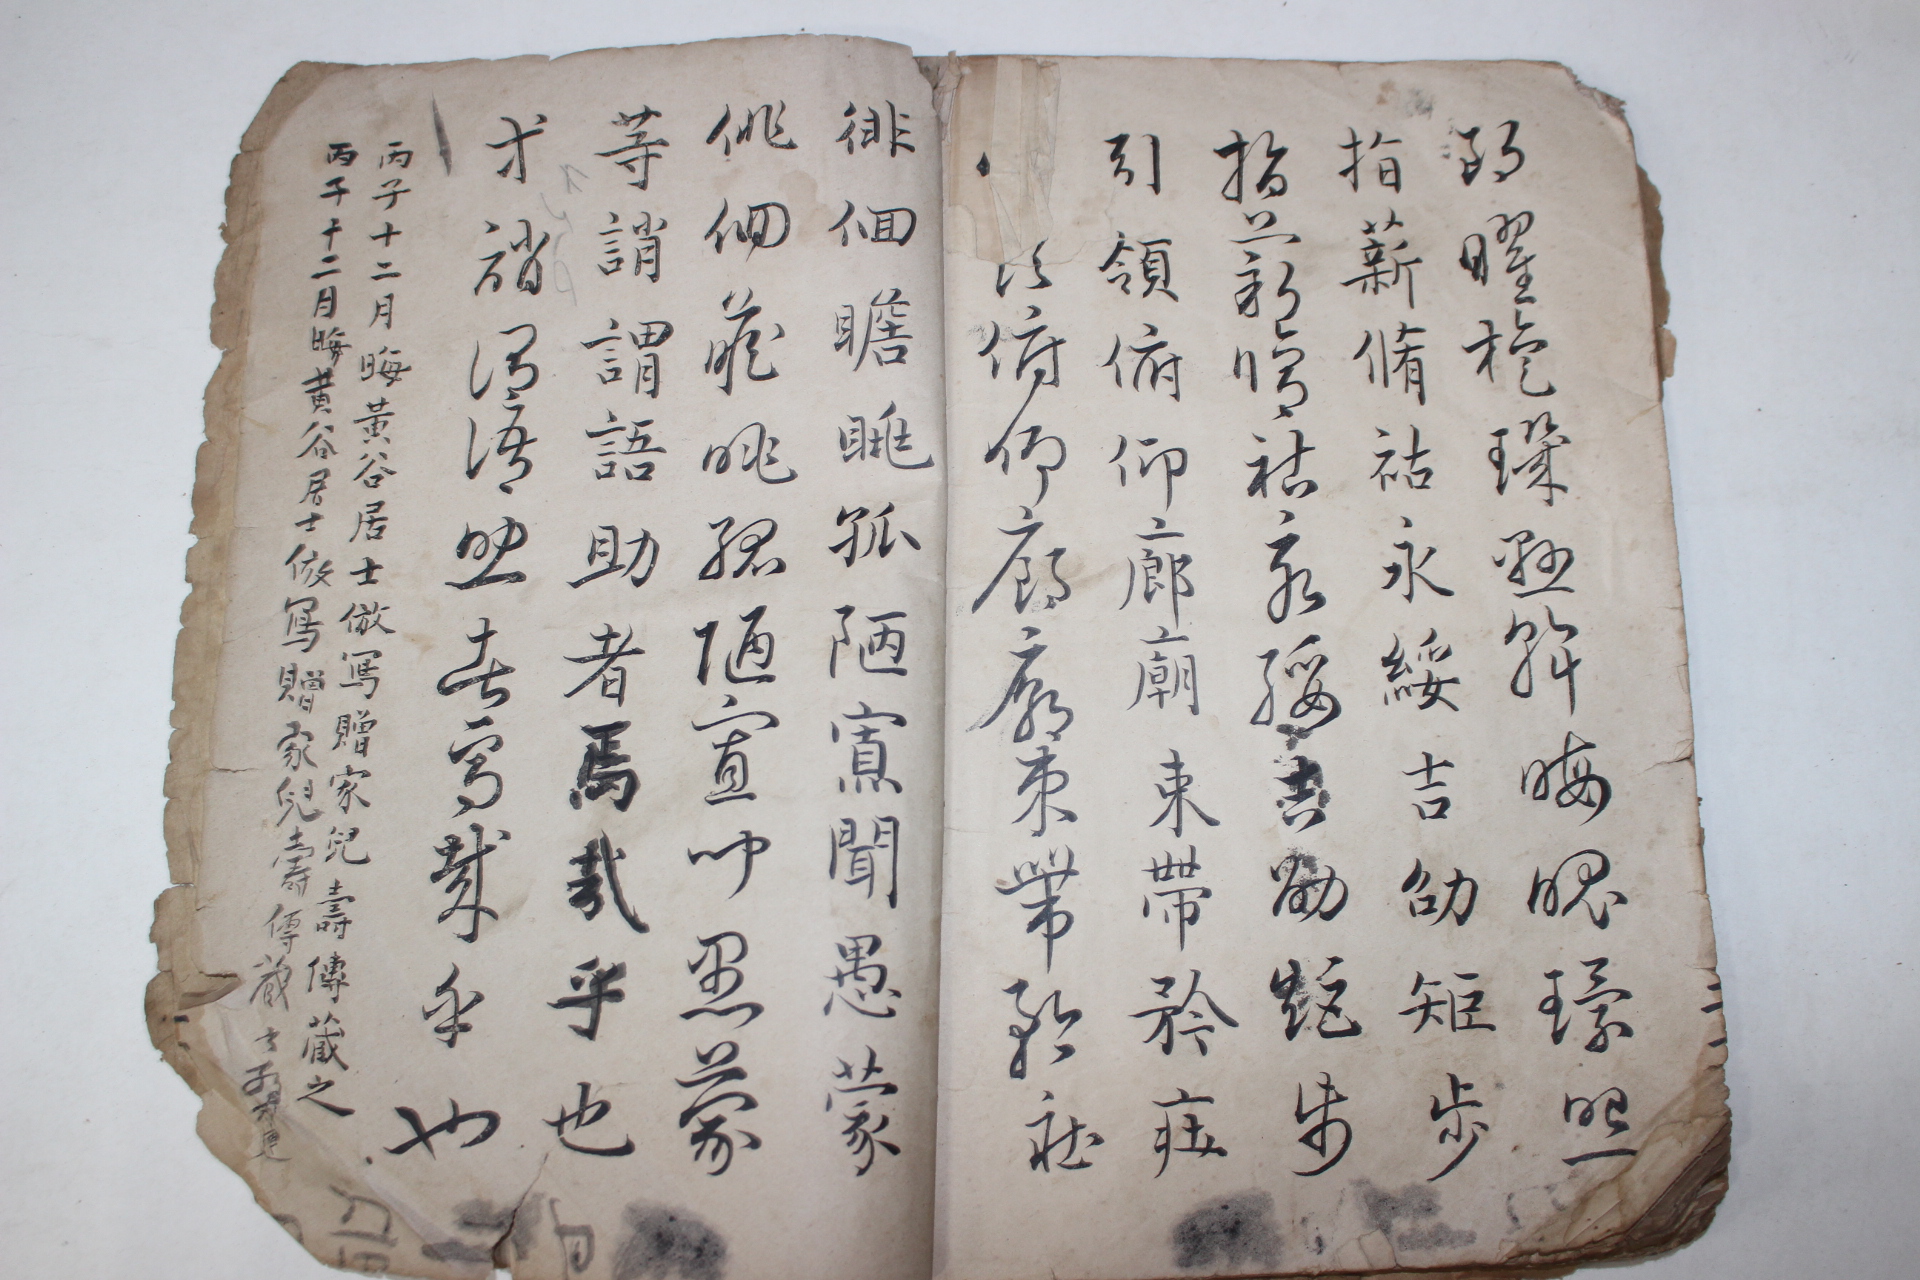 朗曜旋璣懸斡晦魄環照
指薪脩祜永綏吉劭矩步
指薪脩祜永綏吉劭矩步
引領俯仰廊廟束帶矜庄
領俯仰廊廟束帶矜庄
徘徊瞻眺孤陋寡聞愚蒙
徘徊瞻眺孤陋寡聞愚蒙
等誚謂語助者焉哉乎也
等誚謂語助者焉哉乎也
丙子十二月晦黃谷居士倣寫贈家兒壽傳藏之
丙子十二月晦黃谷居士倣寫贈家兒壽傳藏